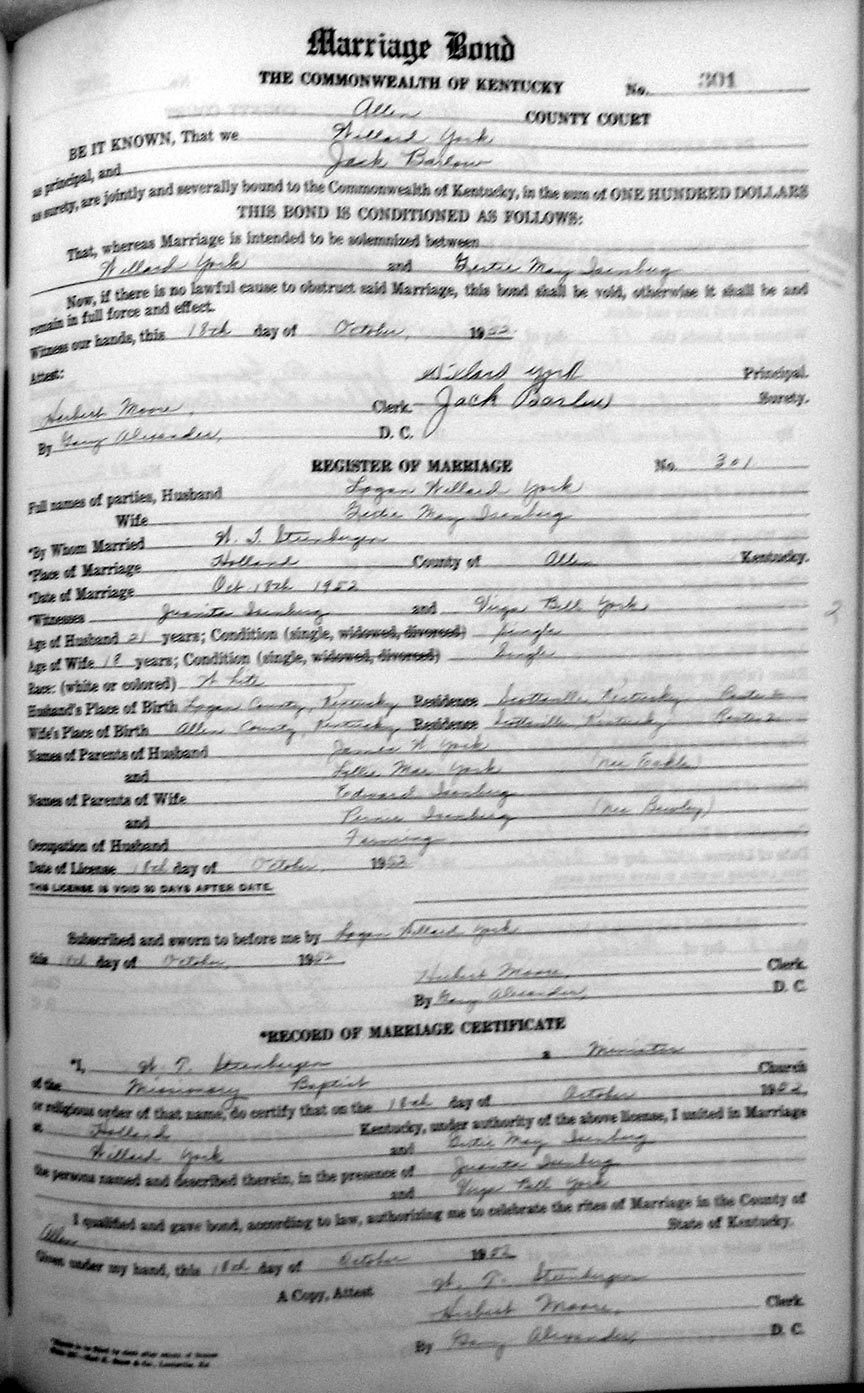 Marriage Bond
THE COMMONWEALTH OF KENTUCKY No. 301
Allen COUNTY COURT
BE IT KNOWN, That we Willard York
as principal, and Jack Barlow
as surety, are jointly and severally bound to the Commonwealth of Kentucky, in the sum of ONE HUNDRED DOLLARS
THIS BOND IS CONDITIONED AS FOLLOWS:
That, whereas Marriage is intended to be solemnized between
Willard York and Gertie May Isenberg
Now, if there is no lawful cause to obstruct said Marriage, this bond shall be void, otherwise it shall be and
remain in full force and effect.
Witness our hands, this 18th day of October, 1952
Attest: Willard York Principal.
Herbert Moore, Clerk. Jack Barlow Surety.
By Gary Alexander, D. C.
REGISTER OF MARRIAGE No. 301
Full names of parties, Husband Logan Willard York
Wife Gertie May Isenberg
*By Whom Married W. T. Steenbergen
*Place of Marriage Holland County of Allen Kentucky.
*Date of Marriage Oct 18th 1952
*Witnesses Juanita Isenberg and Virga Bell York
Age of Husband 21 years; Condition (single, widowed, divorced) Single
Age of Wife 18 years; Condition (single, widowed, divorced) Single
Race: (white or colored) White
Husband's Place of Birth Logan County, Kentucky Residence Scottsville, Kentucky Route
Wife's Place of Birth Allen County, Kentucky Residence Scottsville, Kentucky Route 2
Names of Parents of Husband James W. York
and Mae York (nee
Names of Parents of Wife Edward Isenberg
and Isenberg (nee
Occupation of Husband Farming
Date of License 18th day of October, 1952
THIS LICENSE IS VOID 30 DAYS AFTER DATE.
Subscribed and sworn to before me by Logan Willard York
this 18th day of October, 1952
Herbert Moore, Clerk.
By Gary Alexander, D. C.
*RECORD OF MARRIAGE CERTIFICATE
*I, W. T. Steenbergen a Minister
of the Missionary Baptist Church
or religious order of that name, do certify that on the 18th day of October 1952,
at Holland Kentucky, under authority of the above license, I united in Marriage
Willard York and Gertie May Isenberg
the persons named and described therein, in the presence of Juanita Isenberg
and Virga Bell York
I qualified and gave bond, according to law, authorizing me to celebrate the rites of Marriage in the County of
Allen State of Kentucky.
Given under my hand, this 18th day of October 1952
W. T. Steenbergen
A Copy, Attest Herbert Moore, Clerk.
By Gary Alexander, D. C.